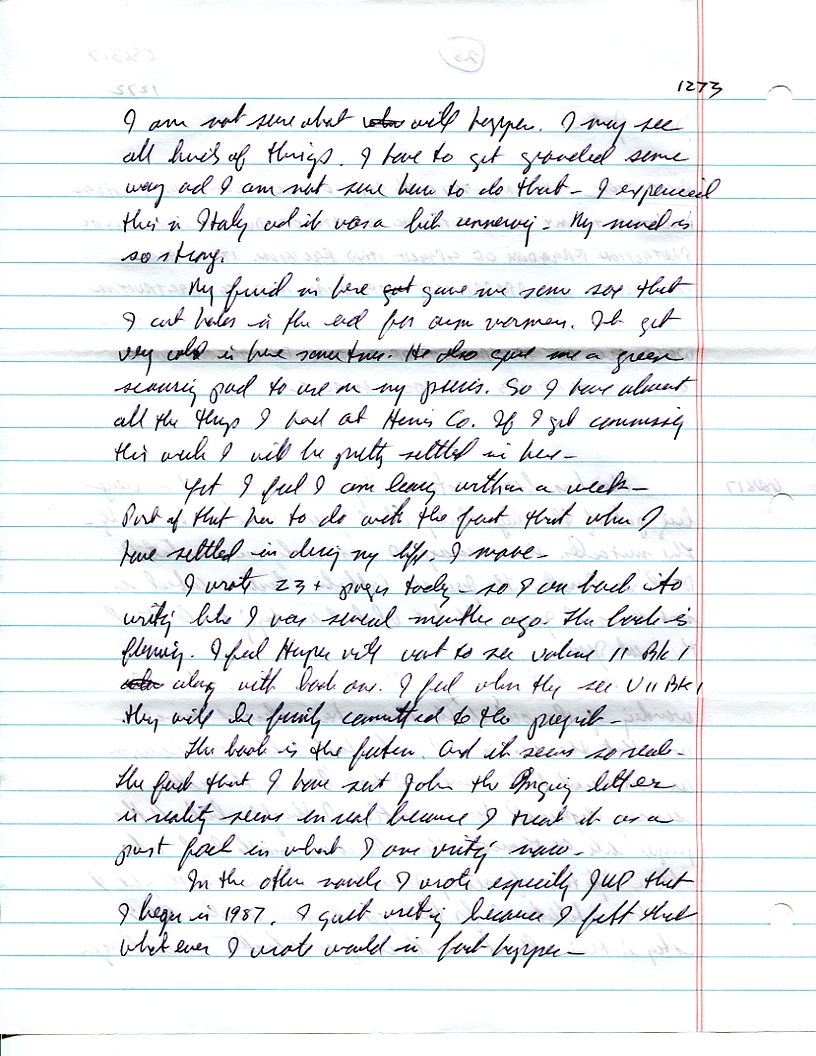 1273
I am not sure what will happen. I may see
all kinds of things. I have to get grounded some
way and I am not sure how to do that - I experienced
this in Italy and it was a bit unnerving - My mind is
so strong.
My friend in here gave me some sox that
I cut holes in the end for arm warmers. It get
very cold in here sometimes. He also gave me a green
scouring pad to use on my So I have almost
all the things I had at Henrico Co. If I get commissary
this week I will be pretty settled in here -
Yet I feel I am leaving within a week -
Part of that has to do with the fact that when I
have settled in during my life, I move -
I wrote 23+ pages today - so I am back into
writing like I was several months ago. The book is
flowing. I feel Harper will want to see volume II Bk I
along with book one. I feel when they see V II Bk I
they will be firmly committed to the project -
The book is the future. And it seems so real -
The fact that I have sent John the letter
in reality seems unreal because I treat it as a
past fact in what I am writing now -
In the other novels I wrote especially that
I began in 1987. I quit writing because I felt that
what ever I wrote would in fact happen -